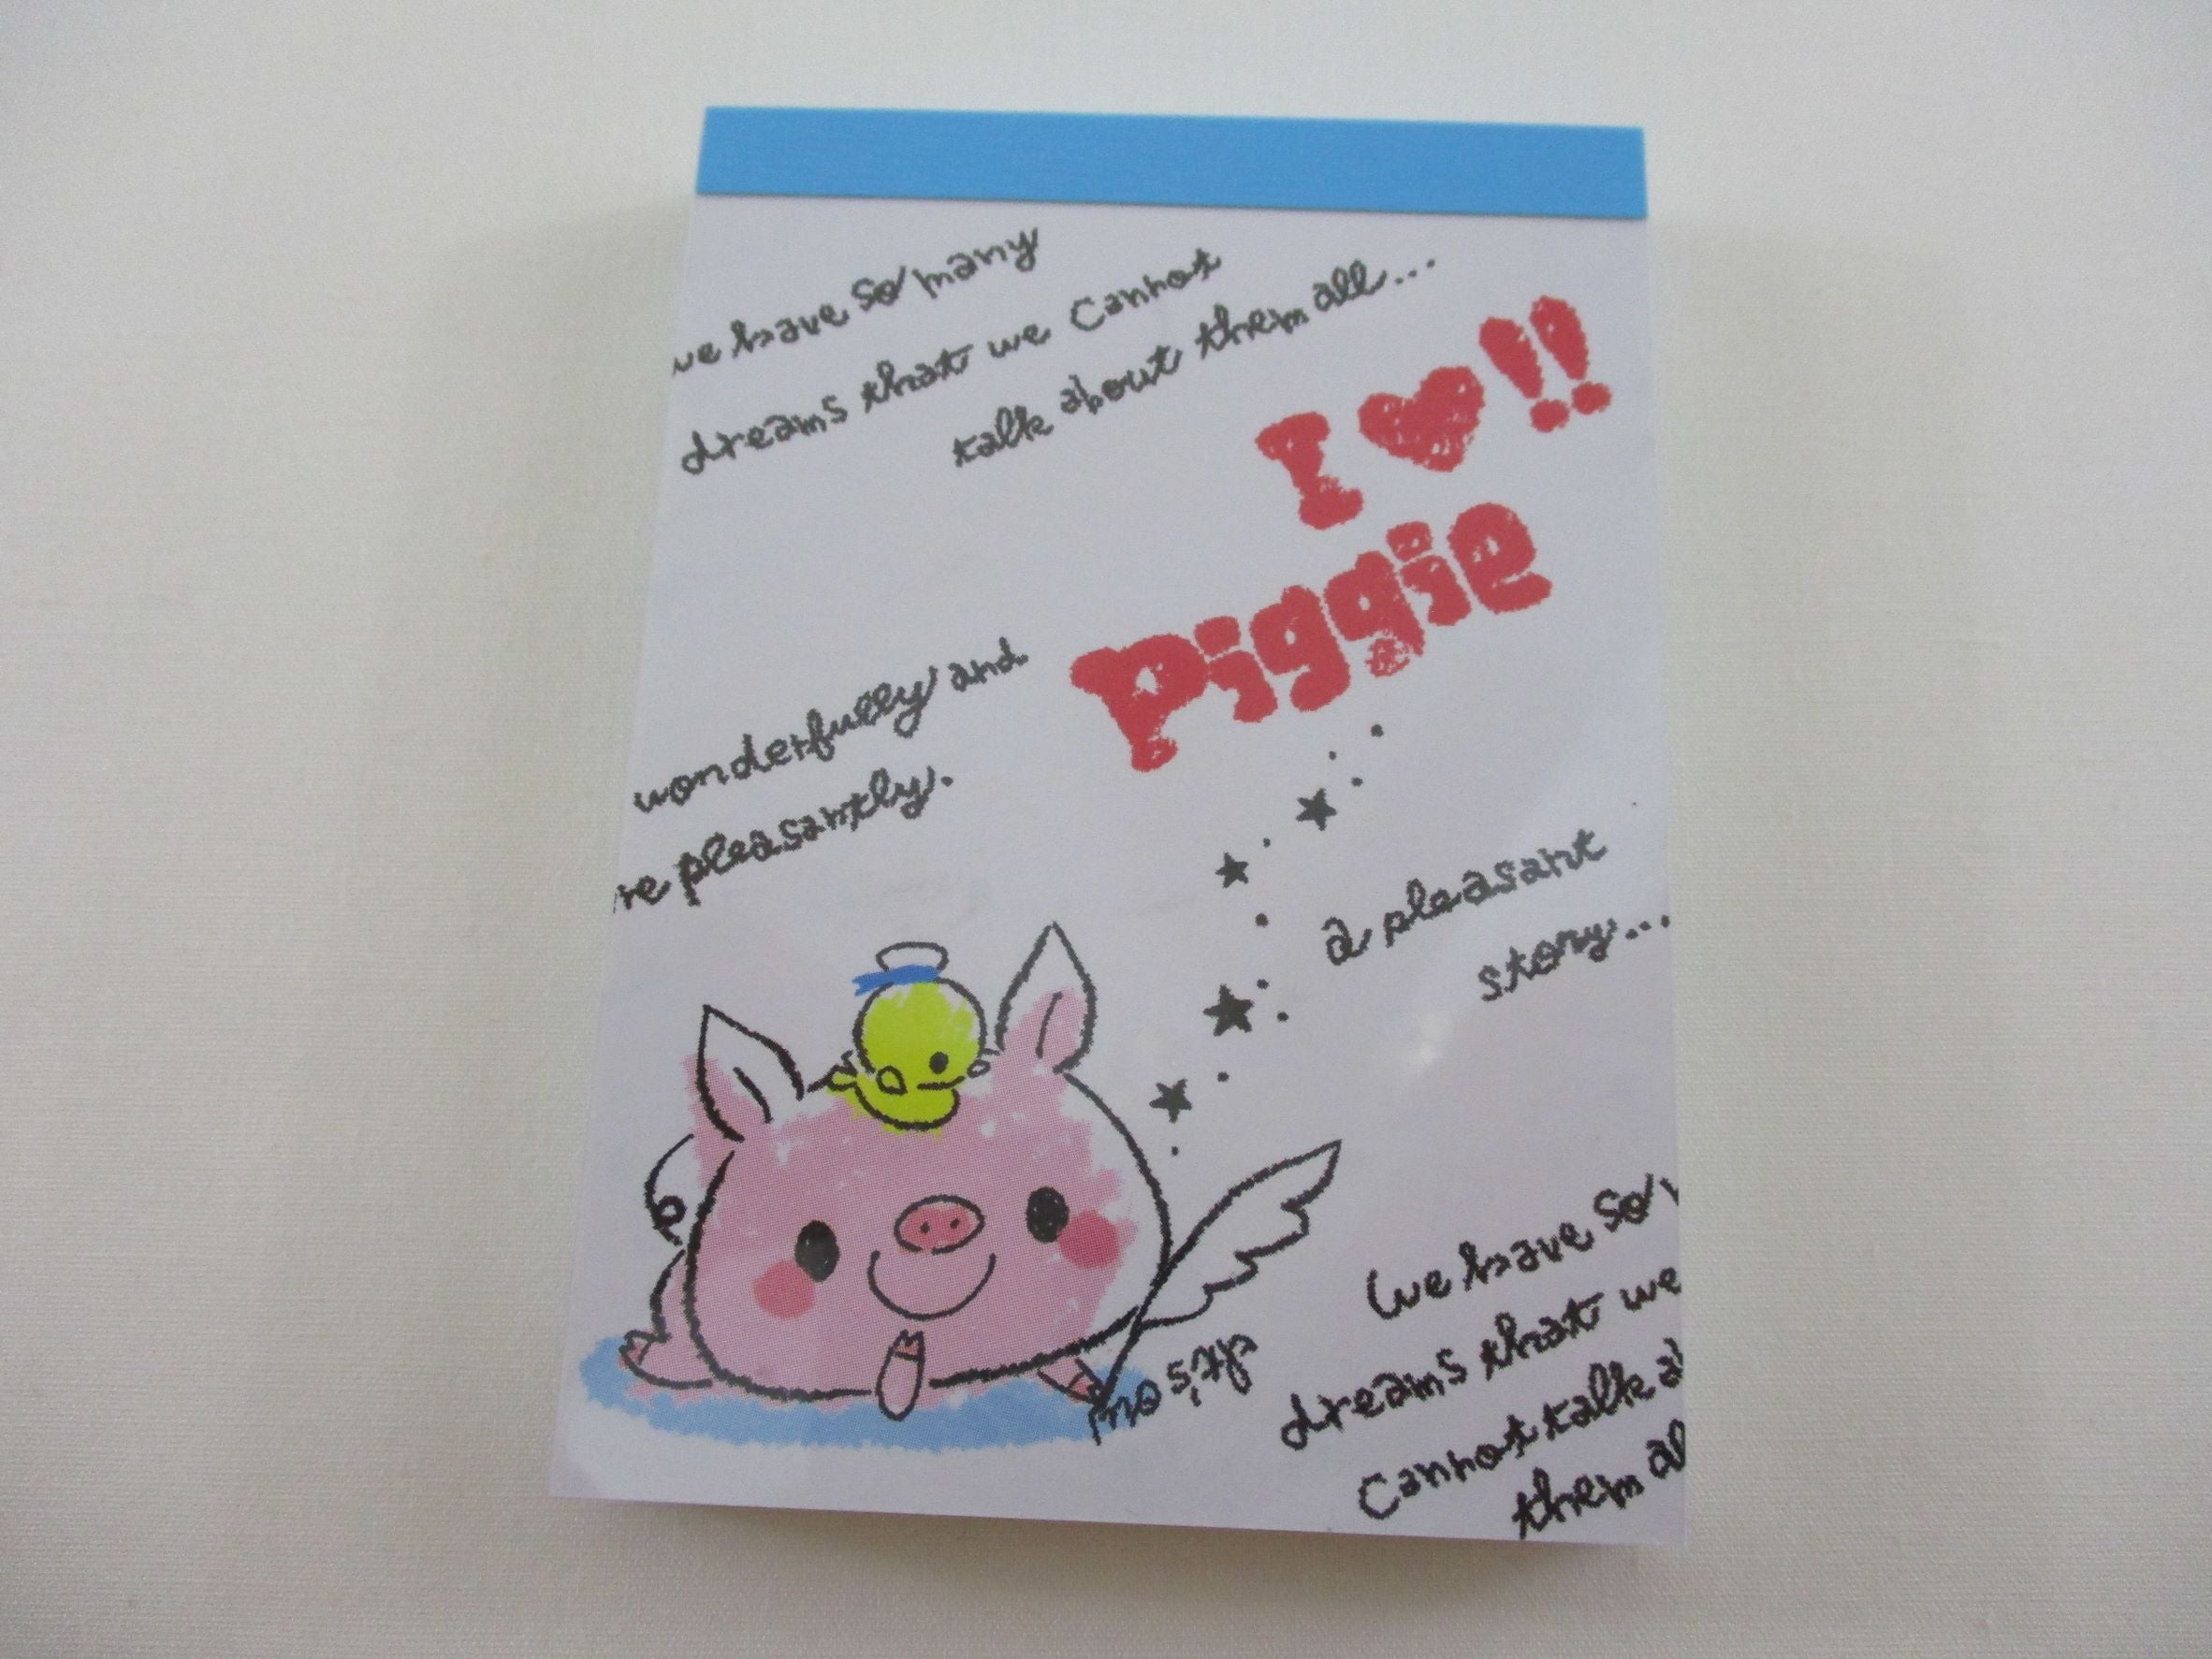 we have so many
dreams that we cannot
talk about them all...
I ♥ !!
Piggie
wonderfully and
re pleasantly.
a pleasant
story...
We have so
dreams that we
cannot talk a
them al